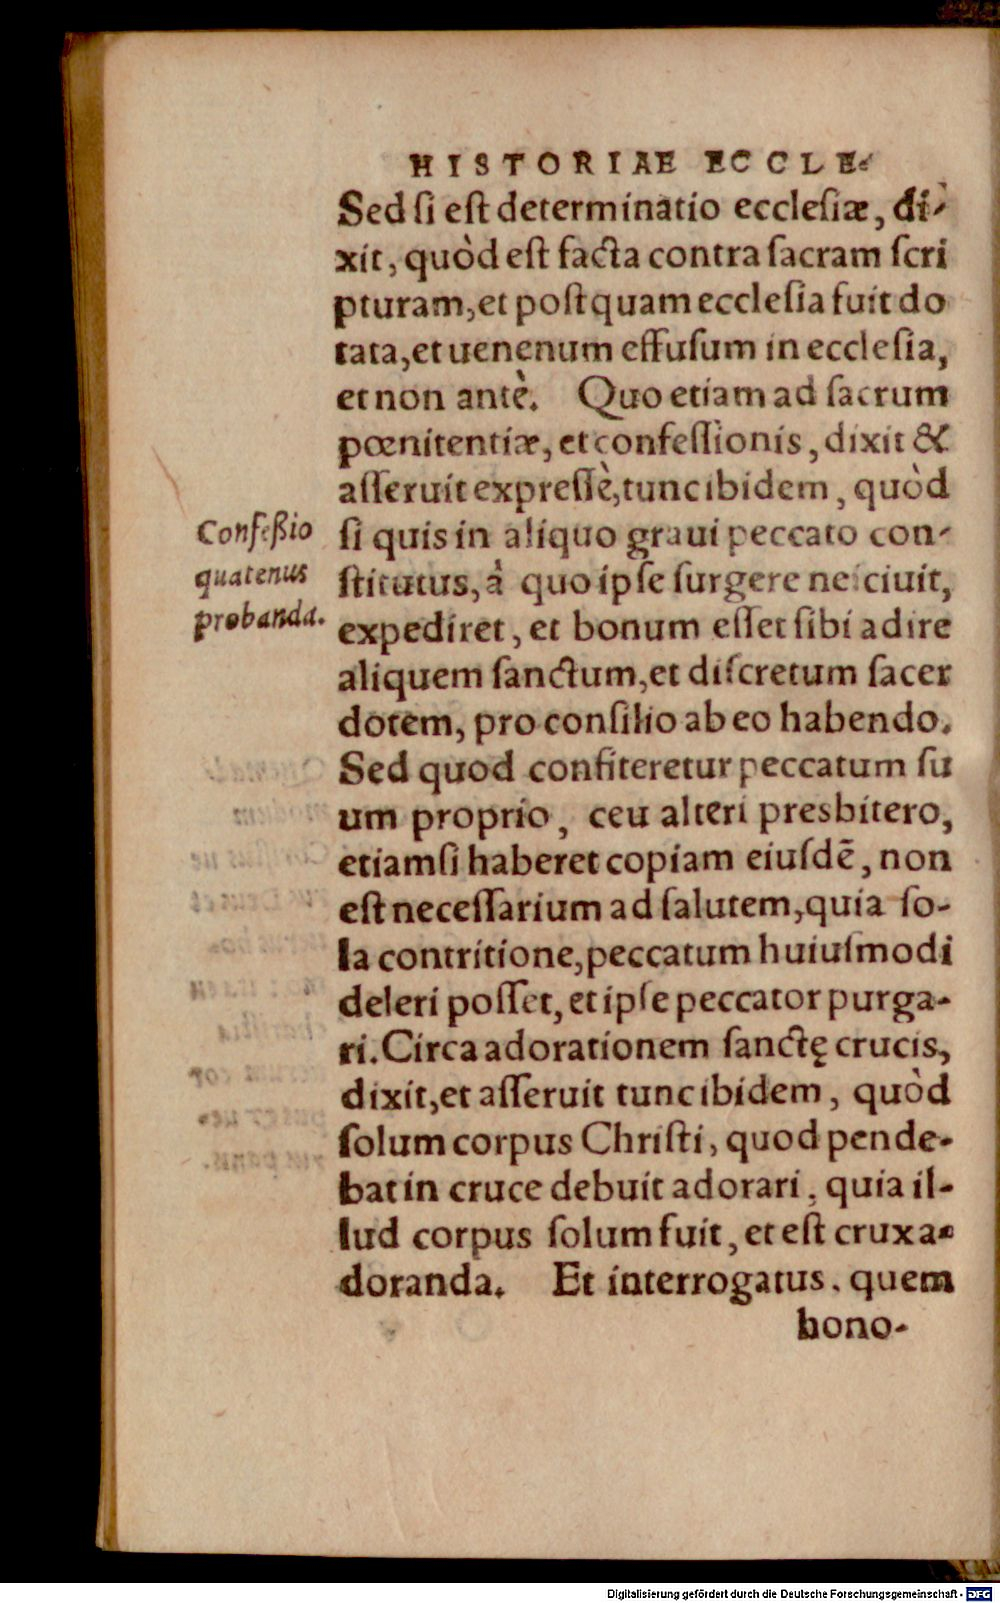 HISTORIAE ECCLE-
Sed ſi eſt determinatio eccleſiæ, di-
xit, quòd eſt facta contra ſacram ſcri
pturam, et poſtquam eccleſia fuit do
tata, et uenenum effuſum in eccleſia,
et non antè. Quo etiam ad ſacrum
pœnitentiæ, et confeſſionis, dixit &
aſſeruit expreſſè, tunc ibidem, quòd
ſi quis in aliquo graui peccato con-
ſtitutus, à quo ipſe ſurgere neſciuit,
expediret, et bonum eſſet ſibi adire
aliquem ſanctum, et diſcretum ſacer
dotem, pro conſilio ab eo habendo.
Sed quod confiteretur peccatum ſu
um proprio, ceu alteri presbitero,
etiamſi haberet copiam eiuſdē, non
eſt neceſſarium ad ſalutem, quia ſo-
la contritione, peccatum huiuſmodi
deleri poſſet, et ipſe peccator purga-
ri. Circa adorationem ſanctę crucis,
dixit, et aſſeruit tunc ibidem, quòd
ſolum corpus Chriſti, quod pende-
bat in cruce debuit adorari, quia il-
lud corpus ſolum fuit, et eſt crux a-
doranda. Et interrogatus, quem
hono-
Confeßio
quatenus
probanda.
Digitalisierung gefördert durch die Deutsche Forschungsgemeinschaft - DFG